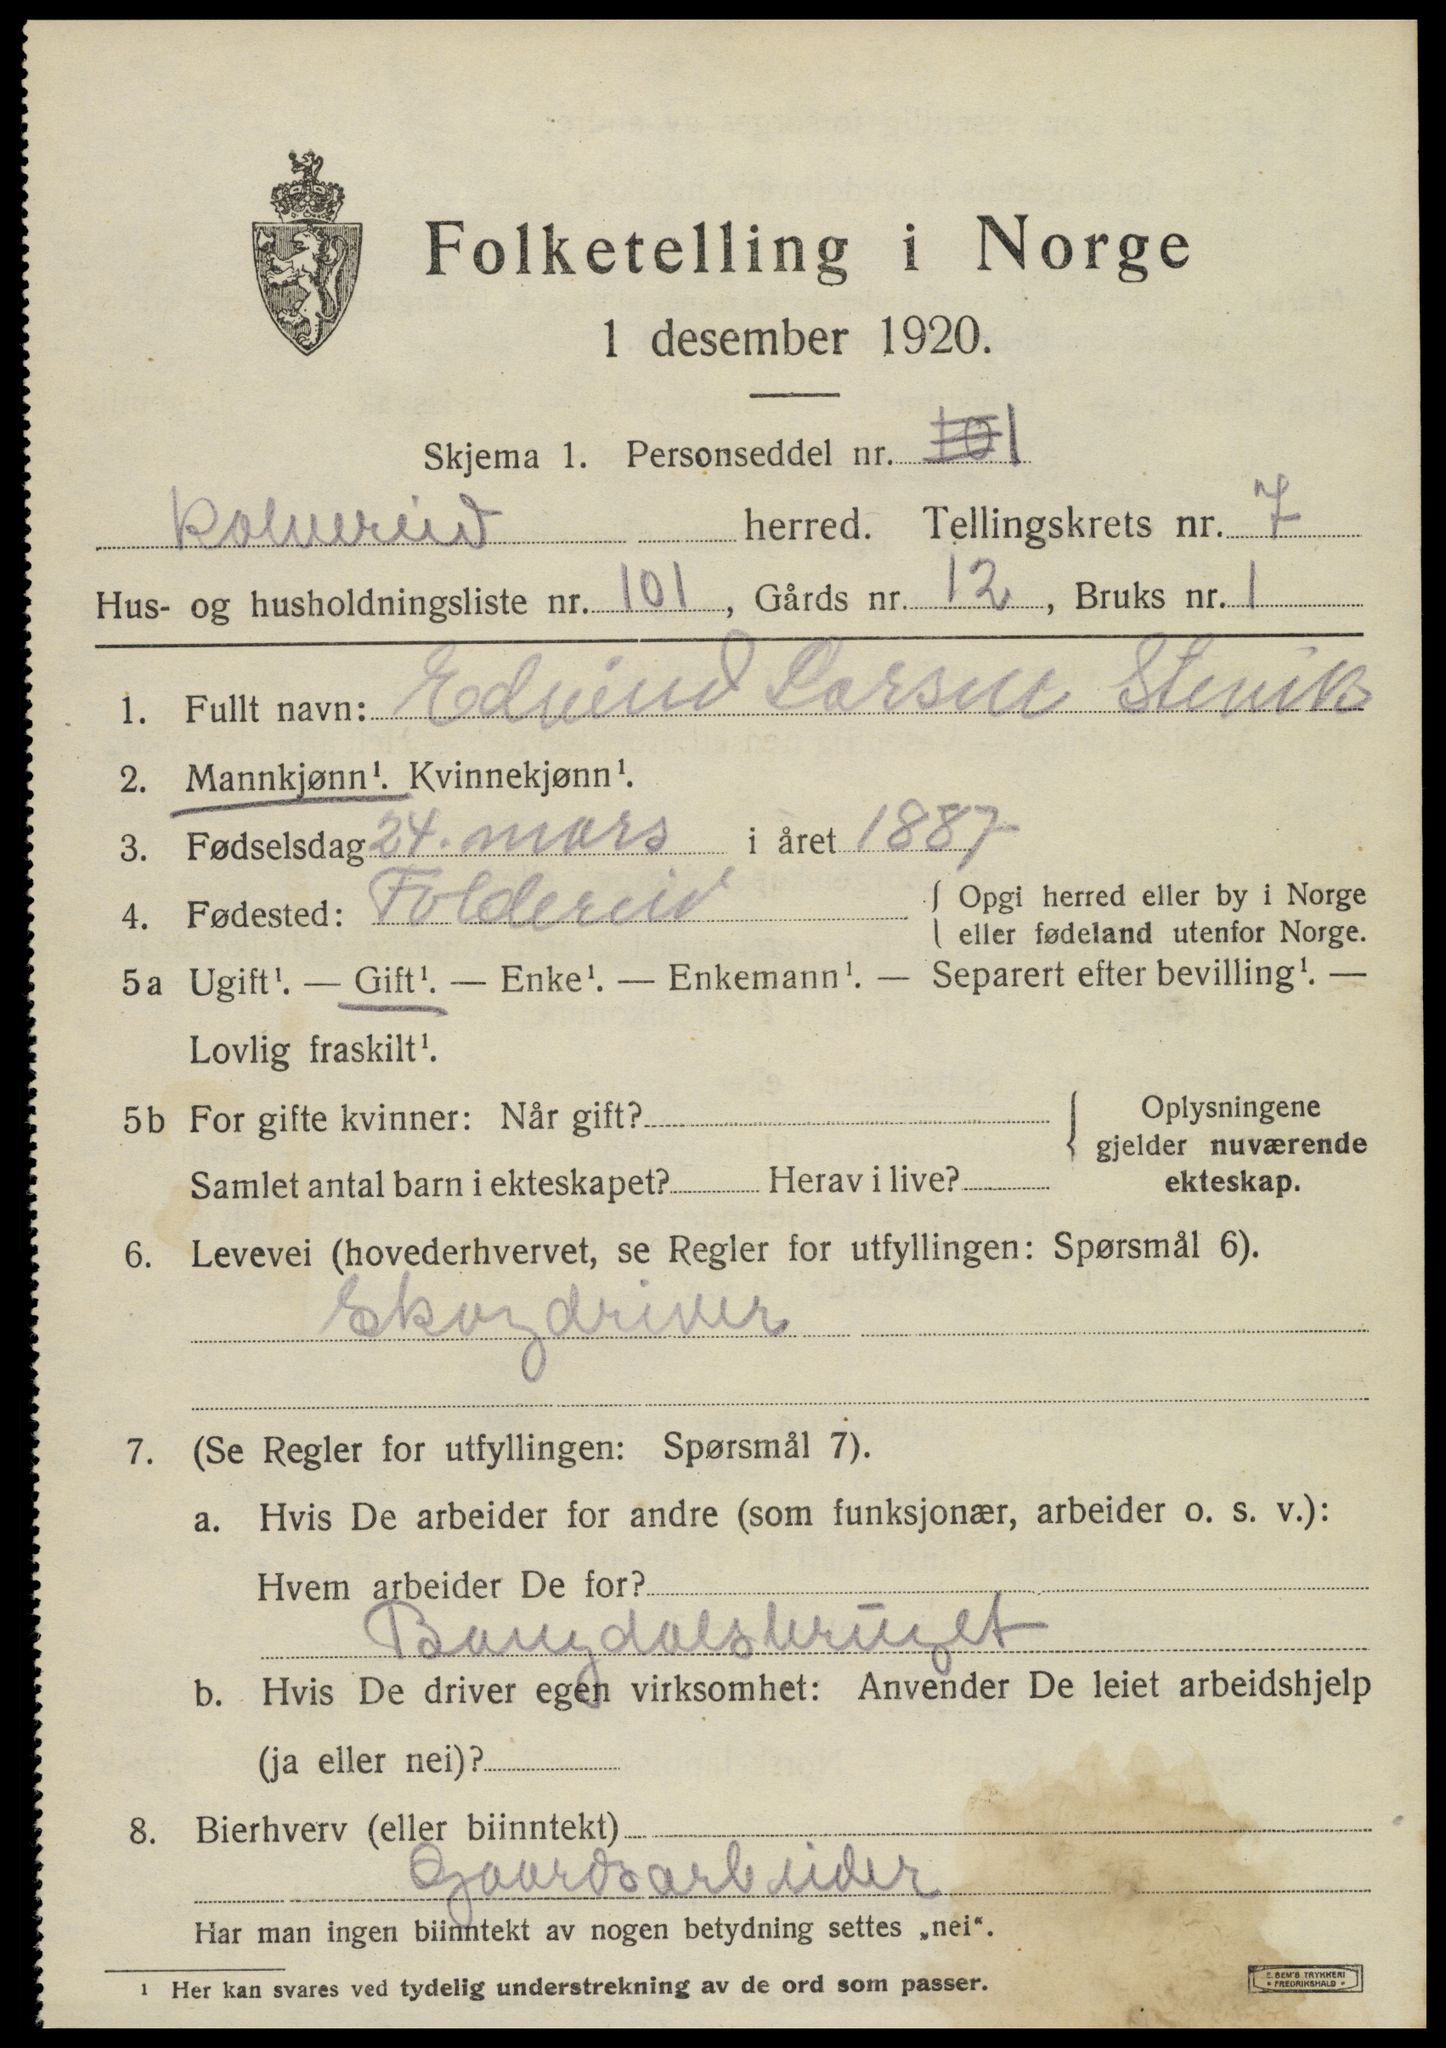 Folketelling i Norge
1 desember 1920.
Skjema 1. Personseddel nr. 1
Kolvereid herred. Tellingskrets nr. 7
Hus- og husholdningsliste nr. 101, Gårds nr. 12, Bruks nr. 1
1. Fullt navn: Edvind Larsen Stenvik
2. Mannkjønn¹. Kvinnekjønn¹.
3. Fødselsdag 24. mars i året 1887
4. Fødested: Foldereid { Opgi herred eller by i Norge
eller fødeland utenfor Norge.
5a Ugift¹. — Gift¹. — Enke¹. — Enkemann¹. — Separert efter bevilling¹. —
Lovlig fraskilt¹.
5b For gifte kvinner: Når gift? { Oplysningene
gjelder nuværende
Samlet antal barn i ekteskapet? Herav i live? ekteskap.
6. Levevei (hovederhvervet, se Regler for utfyllingen: Spørsmål 6).
Skogdriver
7. (Se Regler for utfyllingen: Spørsmål 7).
a. Hvis De arbeider for andre (som funksjonær, arbeider o. s. v.):
Hvem arbeider De for?
Bangdalsbruget
b. Hvis De driver egen virksomhet: Anvender De leiet arbeidshjelp
(ja eller nei)?
8. Bierhverv (eller biinntekt)
Gaardsarbeider
Har man ingen biinntekt av nogen betydning settes „nei“.
¹ Her kan svares ved tydelig understrekning av de ord som passer.
E. SEM'S TRYKKERI
FREDRIKSHALD